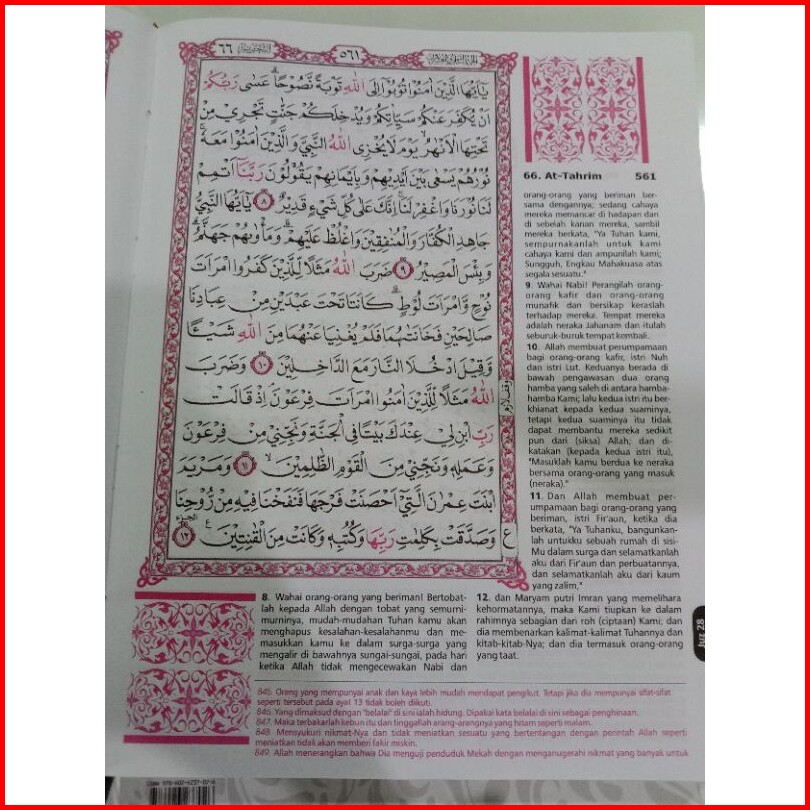 ٦٦
٥٦١
يٰٓاَيُّهَا الَّذِيْنَ اٰمَنُوْا تُوْبُوْٓا اِلَى اللّٰهِ تَوْبَةً نَّصُوْحًاۗ عَسٰى رَبُّكُمْ
اَنْ يُّكَفِّرَ عَنْكُمْ سَيِّاٰتِكُمْ وَيُدْخِلَكُمْ جَنّٰتٍ تَجْرِيْ مِنْ
تَحْتِهَا الْاَنْهٰرُۙ يَوْمَ لَا يُخْزِى اللّٰهُ النَّبِيَّ وَالَّذِيْنَ اٰمَنُوْا مَعَهٗۚ
نُوْرُهُمْ يَسْعٰى بَيْنَ اَيْدِيْهِمْ وَبِاَيْمَانِهِمْ يَقُوْلُوْنَ رَبَّنَآ اَتْمِمْ
لَنَا نُوْرَنَا وَاغْفِرْ لَنَاۚ اِنَّكَ عَلٰى كُلِّ شَيْءٍ قَدِيْرٌ ٨ يٰٓاَيُّهَا النَّبِيُّ
جَاهِدِ الْكُفَّارَ وَالْمُنٰفِقِيْنَ وَاغْلُظْ عَلَيْهِمْۗ وَمَأْوٰىهُمْ جَهَنَّمُۗ
وَبِئْسَ الْمَصِيْرُ ٩ ضَرَبَ اللّٰهُ مَثَلًا لِّلَّذِيْنَ كَفَرُوا امْرَاَتَ
نُوْحٍ وَّامْرَاَتَ لُوْطٍۗ كَانَتَا تَحْتَ عَبْدَيْنِ مِنْ عِبَادِنَا
صَالِحَيْنِ فَخَانَتٰهُمَا فَلَمْ يُغْنِيَا عَنْهُمَا مِنَ اللّٰهِ شَيْـًٔا
وَّقِيْلَ ادْخُلَا النَّارَ مَعَ الدَّاخِلِيْنَ ١٠ وَضَرَبَ
اللّٰهُ مَثَلًا لِّلَّذِيْنَ اٰمَنُوا امْرَاَتَ فِرْعَوْنَۘ اِذْ قَالَتْ
رَبِّ ابْنِ لِيْ عِنْدَكَ بَيْتًا فِى الْجَنَّةِ وَنَجِّنِيْ مِنْ فِرْعَوْنَ
وَعَمَلِهٖ وَنَجِّنِيْ مِنَ الْقَوْمِ الظّٰلِمِيْنَۙ ١١ وَمَرْيَمَ
ابْنَتَ عِمْرٰنَ الَّتِيْٓ اَحْصَنَتْ فَرْجَهَا فَنَفَخْنَا فِيْهِ مِنْ رُّوْحِنَا
وَصَدَّقَتْ بِكَلِمٰتِ رَبِّهَا وَكُتُبِهٖ وَكَانَتْ مِنَ الْقٰنِتِيْنَ ١٢
ع
66. At-Tahrim 561
orang-orang yang beriman ber-
sama dengannya; sedang cahaya
mereka memancar di hadapan dan
di sebelah kanan mereka, sambil
mereka berkata, "Ya Tuhan kami,
sempurnakanlah untuk kami
cahaya kami dan ampunilah kami;
Sungguh, Engkau Mahakuasa atas
segala sesuatu."
9. Wahai Nabi! Perangilah orang-
orang kafir dan orang-orang
munafik dan bersikap keraslah
terhadap mereka. Tempat mereka
adalah neraka Jahanam dan itulah
seburuk-buruk tempat kembali.
10. Allah membuat perumpamaan
bagi orang-orang kafir, istri Nuh
dan istri Lut. Keduanya berada di
bawah pengawasan dua orang
hamba yang saleh di antara hamba-
hamba Kami; lalu kedua istri itu ber-
khianat kepada kedua suaminya,
tetapi kedua suaminya itu tidak
dapat membantu mereka sedikit
pun dari (siksa) Allah; dan di-
katakan (kepada kedua istri itu),
"Masuklah kamu berdua ke neraka
bersama orang-orang yang masuk
(neraka)."
11. Dan Allah membuat per-
umpamaan bagi orang-orang yang
beriman, istri Fir'aun, ketika dia
berkata, "Ya Tuhanku, bangunkan-
lah untukku sebuah rumah di sisi-
Mu dalam surga dan selamatkanlah
aku dari Fir'aun dan perbuatannya,
dan selamatkanlah aku dari kaum
yang zalim,"
8. Wahai orang-orang yang beriman! Bertobat-
lah kepada Allah dengan tobat yang semurni-
murninya, mudah-mudahan Tuhan kamu akan
menghapus kesalahan-kesalahanmu dan me-
masukkan kamu ke dalam surga-surga yang
mengalir di bawahnya sungai-sungai, pada hari
ketika Allah tidak mengecewakan Nabi dan
12. dan Maryam putri Imran yang memelihara
kehormatannya, maka Kami tiupkan ke dalam
rahimnya sebagian dari roh (ciptaan) Kami; dan
dia membenarkan kalimat-kalimat Tuhannya dan
kitab-kitab-Nya; dan dia termasuk orang-orang
yang taat.
Juz 28
845. Orang yang mempunyai anak dan kaya lebih mudah mendapat pengikut. Tetapi jika dia mempunyai sifat-sifat
seperti tersebut pada ayat 13 tidak boleh diikuti.
846. Yang dimaksud dengan "belalai" di sini ialah hidung. Dipakai kata belalai di sini sebagai penghinaan.
847. Maka terbakarlah kebun itu dan tinggallah arang-arangnya yang hitam seperti malam.
848. Mensyukuri nikmat-Nya dan tidak meniatkan sesuatu yang bertentangan dengan perintah Allah seperti
meniatkan tidak akan memberi fakir miskin.
849. Allah menerangkan bahwa Dia menguji penduduk Mekah dengan menganugerahi nikmat yang banyak untuk